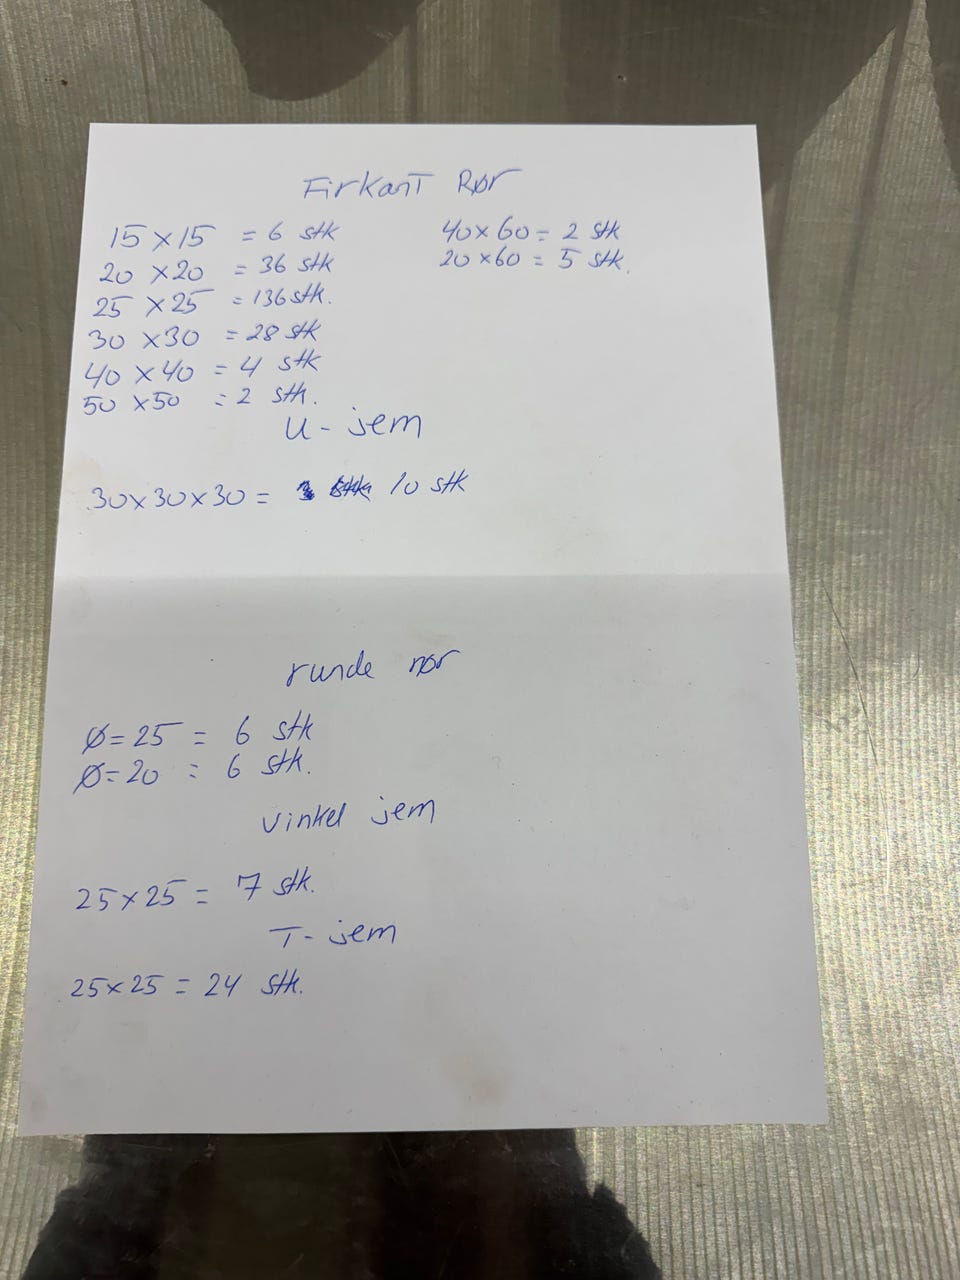 Firkant Rør
15 x 15 = 6 stk
20 x 20 = 36 stk
25 x 25 = 136 stk.
30 x 30 = 28 stk
40 x 40 = 4 stk
50 x 50 = 2 stk.
40 x 60 = 2 stk
20 x 60 = 5 stk.
U - jern
30 x 30 x 30 = 10 stk
runde rør
Ø = 25 = 6 stk
Ø = 20 = 6 stk.
Vinkel jern
25 x 25 = 7 stk.
T - jern
25 x 25 = 24 stk.